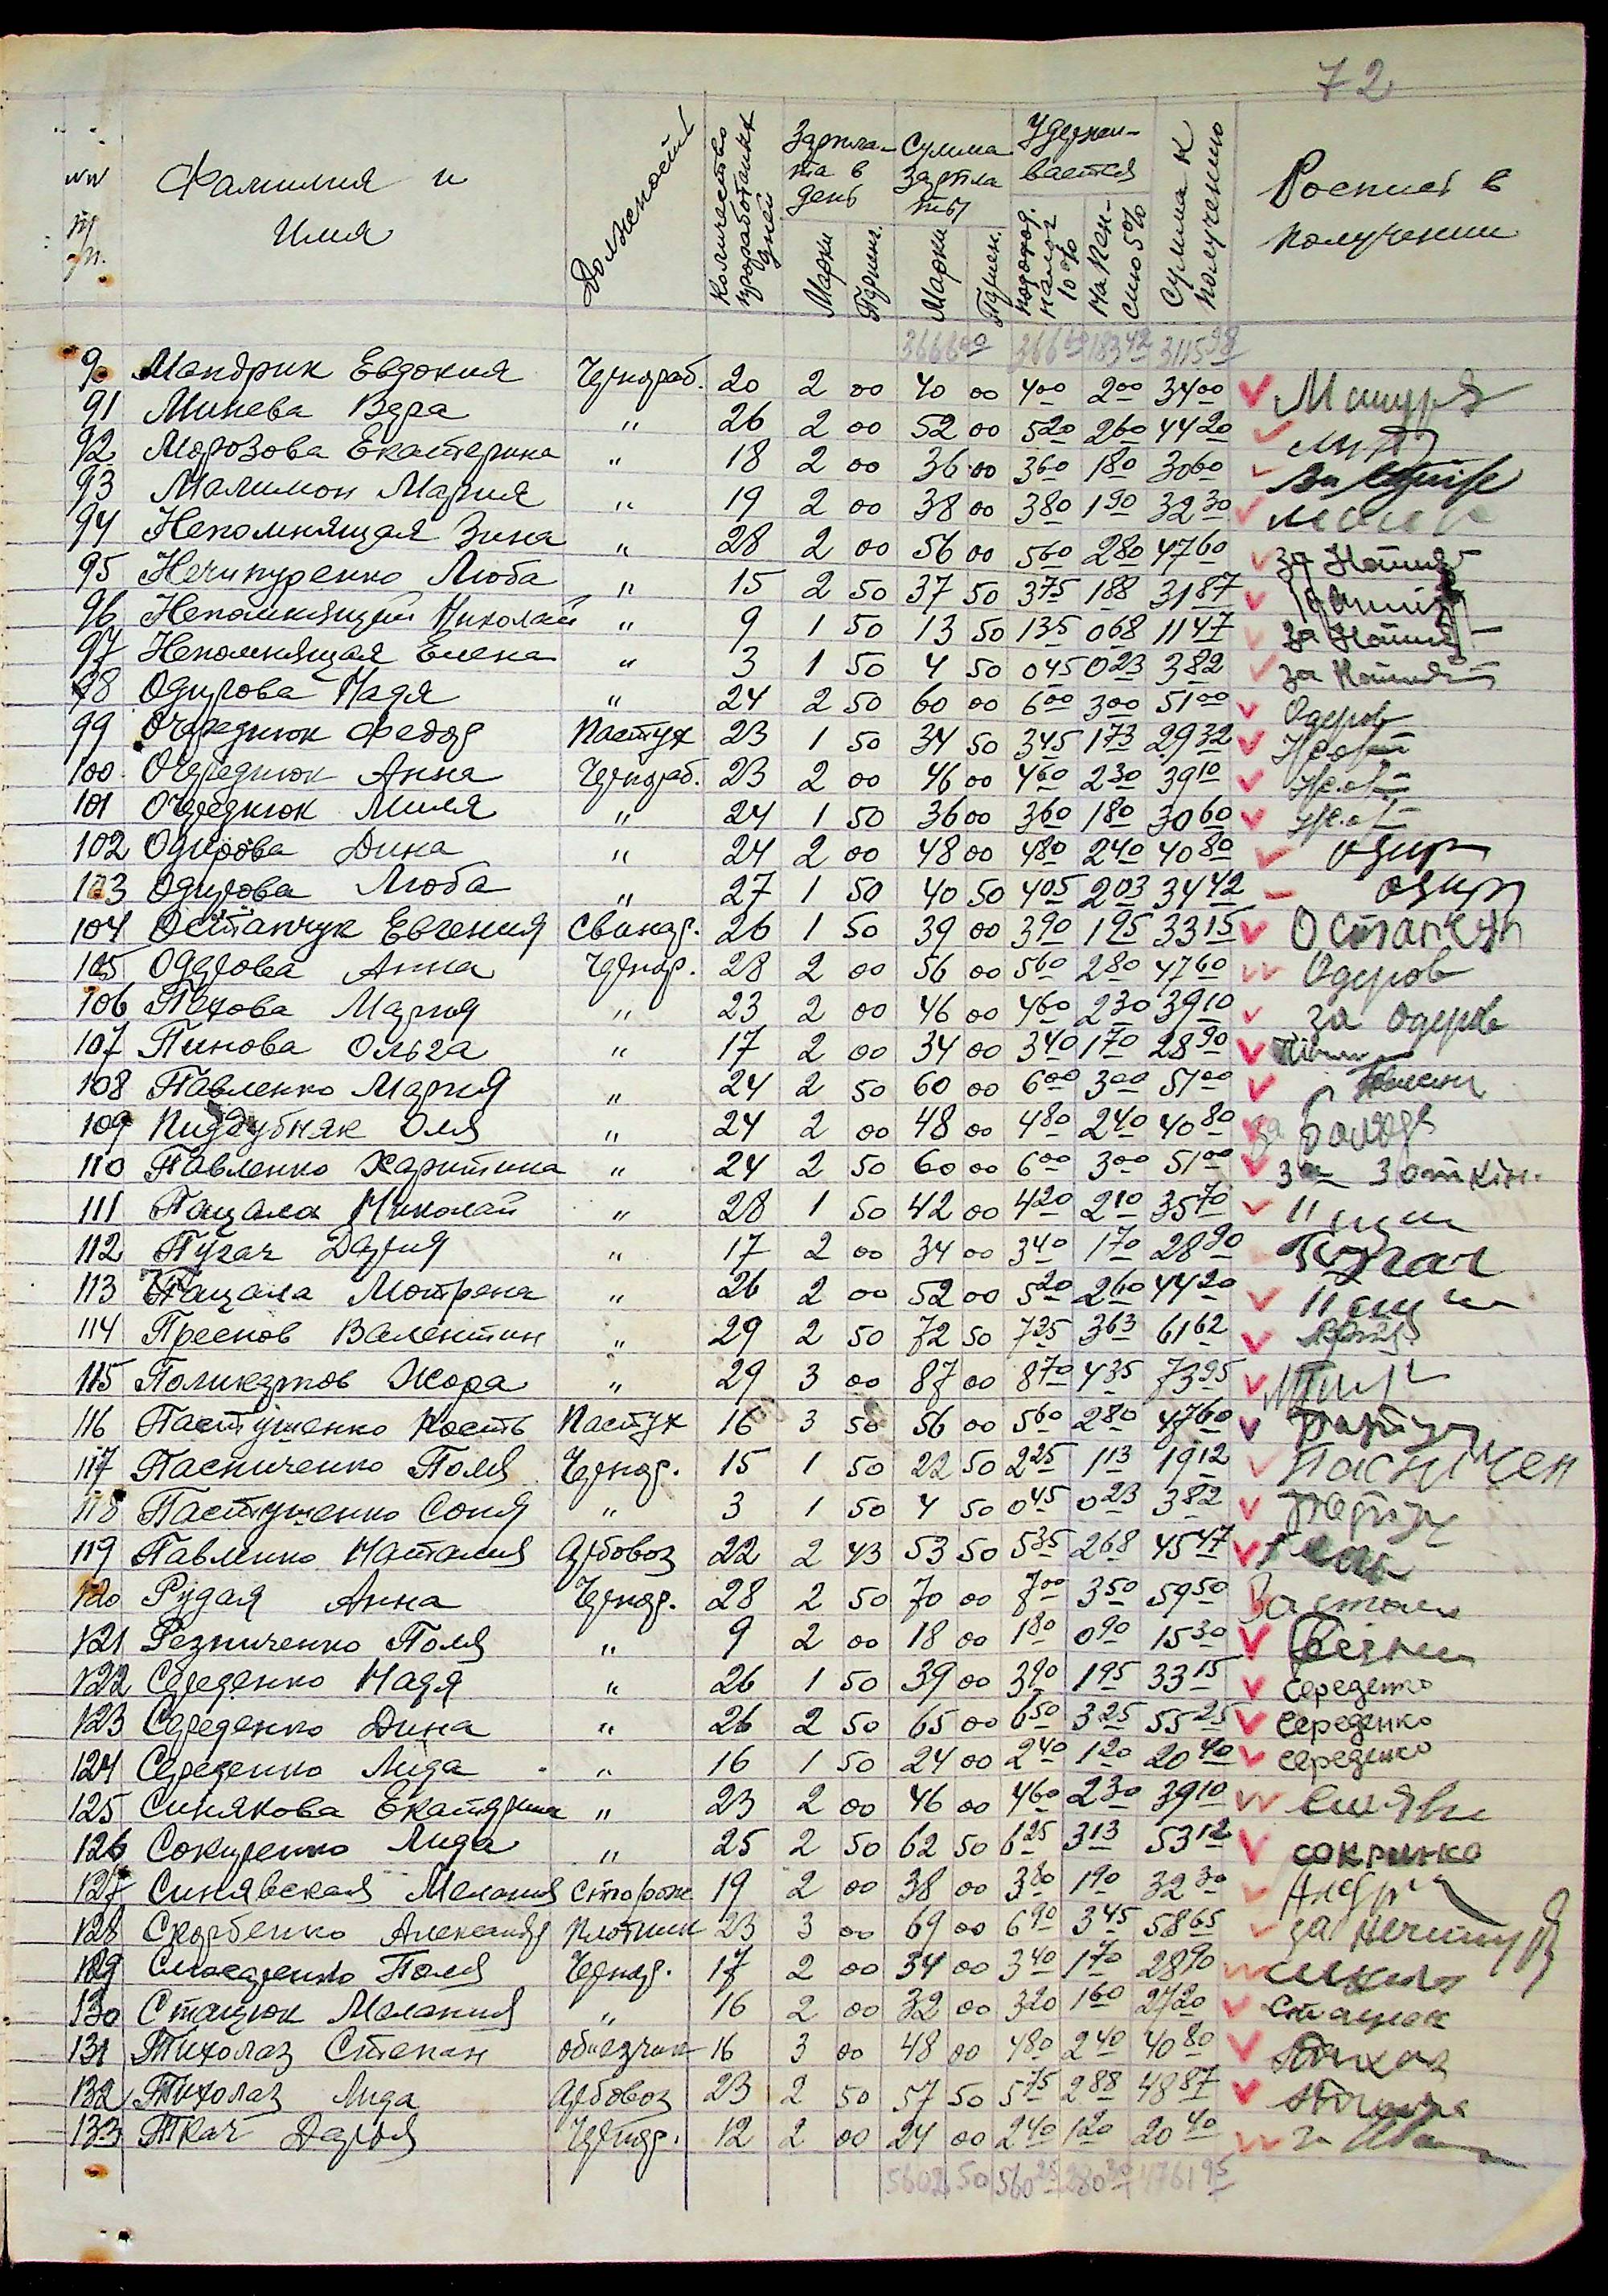 72
№№ п/п. Фамилия и Имя Должность Количество проработанных дней Зарплата в день Марки Пфенг. Сумма зарплаты Марки Пфен. Удерживается подоход. налог 10% на пенсию 5% Сумма к получению Роспись в получении
3668 00 366 80 183 42 3115 98
90 Мандрик Евдокия Чернораб. 20 2 00 40 00 4 00 2 00 34 00
91 Минева Вера " 26 2 00 52 00 5 20 2 60 44 20
92 Морозова Екатерина " 18 2 00 36 00 3 60 1 80 30 60
93 Малимон Мария " 19 2 00 38 00 3 80 1 90 32 30
94 Непомнящая Зина " 28 2 00 56 00 5 60 2 80 47 60
95 Нечипуренко Люба " 15 2 50 37 50 3 75 1 88 31 87
96 Непомнящий Николай " 9 1 50 13 50 1 35 0 68 11 47
97 Непомнящая Елена " 3 1 50 4 50 0 45 0 23 3 82
98 Одирова Надя " 24 2 50 60 00 6 00 3 00 51 00 Одеров
99 Очереднюк Федор Пастух 23 1 50 34 50 3 45 1 73 29 32
100 Очереднюк Анна Чернораб. 23 2 00 46 00 4 60 2 30 39 10
101 Очереднюк Миля " 24 1 50 36 00 3 60 1 80 30 60
102 Одирова Дина " 24 2 00 48 00 4 80 2 40 40 80 Одир
103 Одирова Люба " 27 1 50 40 50 4 05 2 03 34 42 Одир
104 Остапчук Евгения Свинар. 26 1 50 39 00 3 90 1 95 33 15
105 Одерова Анна Чернор. 28 2 00 56 00 5 60 2 80 47 60 Одеров
106 Пехова Мария " 23 2 00 46 00 4 60 2 30 39 10 за Одеров
107 Пинова Ольга " 17 2 00 34 00 3 40 1 70 28 90
108 Павленко Мария " 24 2 50 60 00 6 00 3 00 51 00
109 Пиддубняк Оля " 24 2 00 48 00 4 80 2 40 40 80
110 Павленко Харитина " 24 2 50 60 00 6 00 3 00 51 00
111 Пацала Николай " 28 1 50 42 00 4 20 2 10 35 70
112 Пугач Дария " 17 2 00 34 00 3 40 1 70 28 90 Пугач
113 Пацала Мотрена " 26 2 00 52 00 5 20 2 60 44 20
114 Преснов Валентин " 29 2 50 72 50 7 25 3 63 61 62
115 Поликарпов Жора " 29 3 00 87 00 8 70 4 35 73 95
116 Пастушенко Кость Пастух 16 3 50 56 00 5 60 2 80 47 60
117 Пасниченко Поля Чернор. 15 1 50 22 50 2 25 1 13 19 12 Пасничен
118 Пастушенко Соня " 3 1 50 4 50 0 45 0 23 3 82
119 Павленко Наталия Арбовоз 22 2 43 53 50 5 35 2 68 45 47
120 Рудая Анна Чернор. 28 2 50 70 00 7 00 3 50 59 50
121 Резниченко Поля " 9 2 00 18 00 1 80 0 90 15 30
122 Середенко Надя " 26 1 50 39 00 3 90 1 95 33 15 Середенко
123 Середенко Дина " 26 2 50 65 00 6 50 3 25 55 25 Середенко
124 Середенко Лида " 16 1 50 24 00 2 40 1 20 20 40 Середенко
125 Синякова Екатерина " 23 2 00 46 00 4 60 2 30 39 10
126 Сокиренко Лида " 25 2 50 62 50 6 25 3 13 53 12
127 Синявская Мелания Сторож 19 2 00 38 00 3 80 1 90 32 30
128 Скорбенко Александр Плотник 23 3 00 69 00 6 90 3 45 58 65
129 Поля Чернор. 17 2 00 34 00 3 40 1 70 28 90
130 Стацюк Мелания " 16 2 00 32 00 3 20 1 60 27 20 Стацюк
131 Тихолаз Степан объездчик 16 3 00 48 00 4 80 2 40 40 80
132 Тихолаз Лида Арбовоз 23 2 50 57 50 5 75 2 88 48 87
133 Ткач Дарья Чернор. 12 2 00 24 00 2 40 1 20 20 40
5602 50 560 25 280 30 4761 95